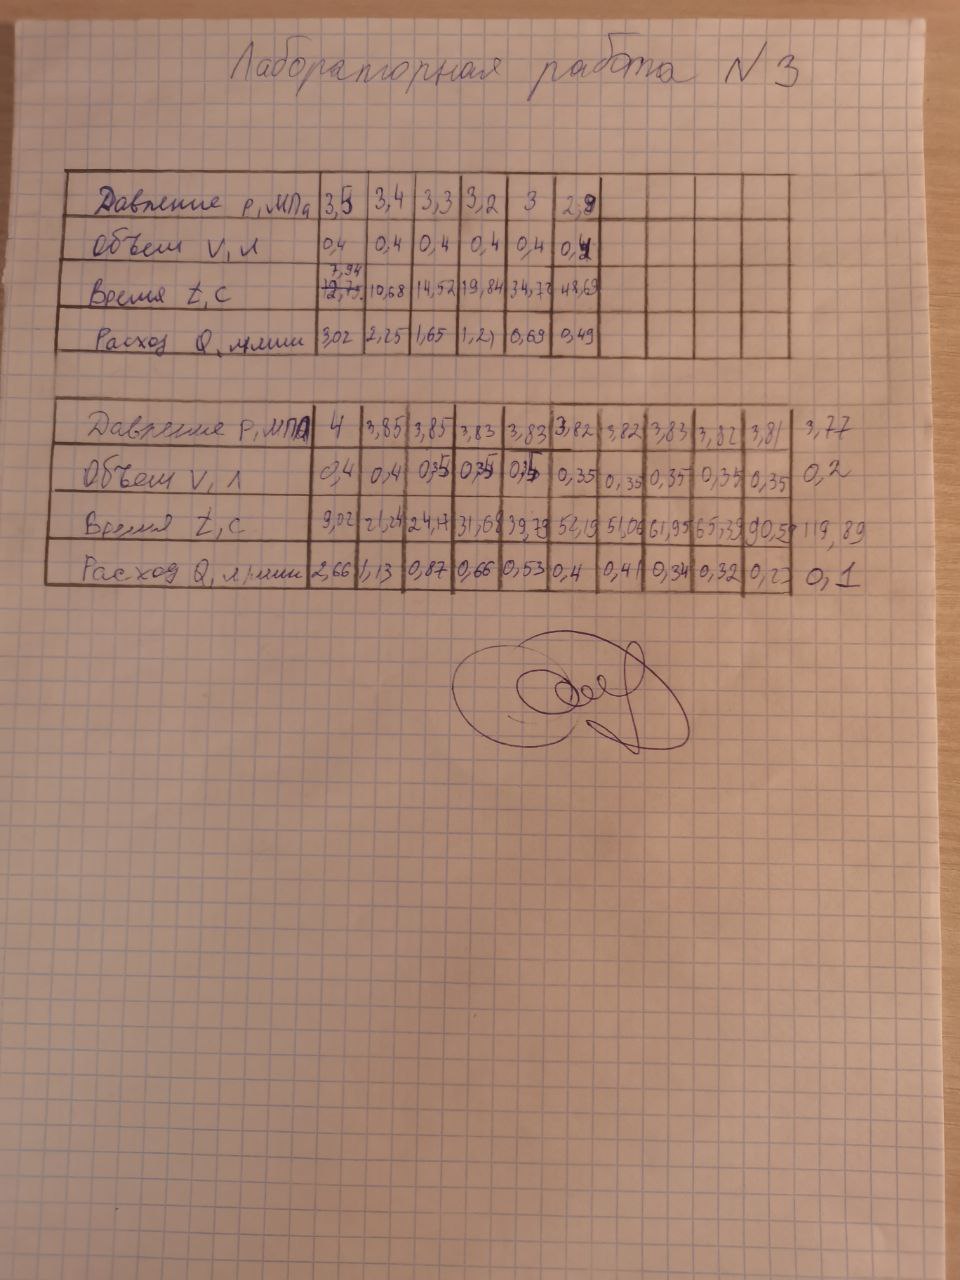 Лабораторная работа N 3
Давление р, МПа 3,5 3,4 3,3 3,2 3 2,9
Объем V, л 0,4 0,4 0,4 0,4 0,4 0,4
7,94
Время t, с 12,75 10,68 14,52 19,84 34,72 48,69
Расход Q, л/мин 3,02 2,25 1,65 1,21 0,69 0,49
Давление р, МПа 4 3,85 3,85 3,83 3,83 3,82 3,82 3,83 3,82 3,81 3,77
Объем V, л 0,4 0,4 0,35 0,35 0,35 0,35 0,35 0,35 0,35 0,35 0,2
Время t, с 9,02 21,24 24,17 31,68 39,79 52,19 51,06 61,95 65,39 90,59 119,89
Расход Q, л/мин 2,66 1,13 0,87 0,66 0,53 0,4 0,41 0,34 0,32 0,23 0,1